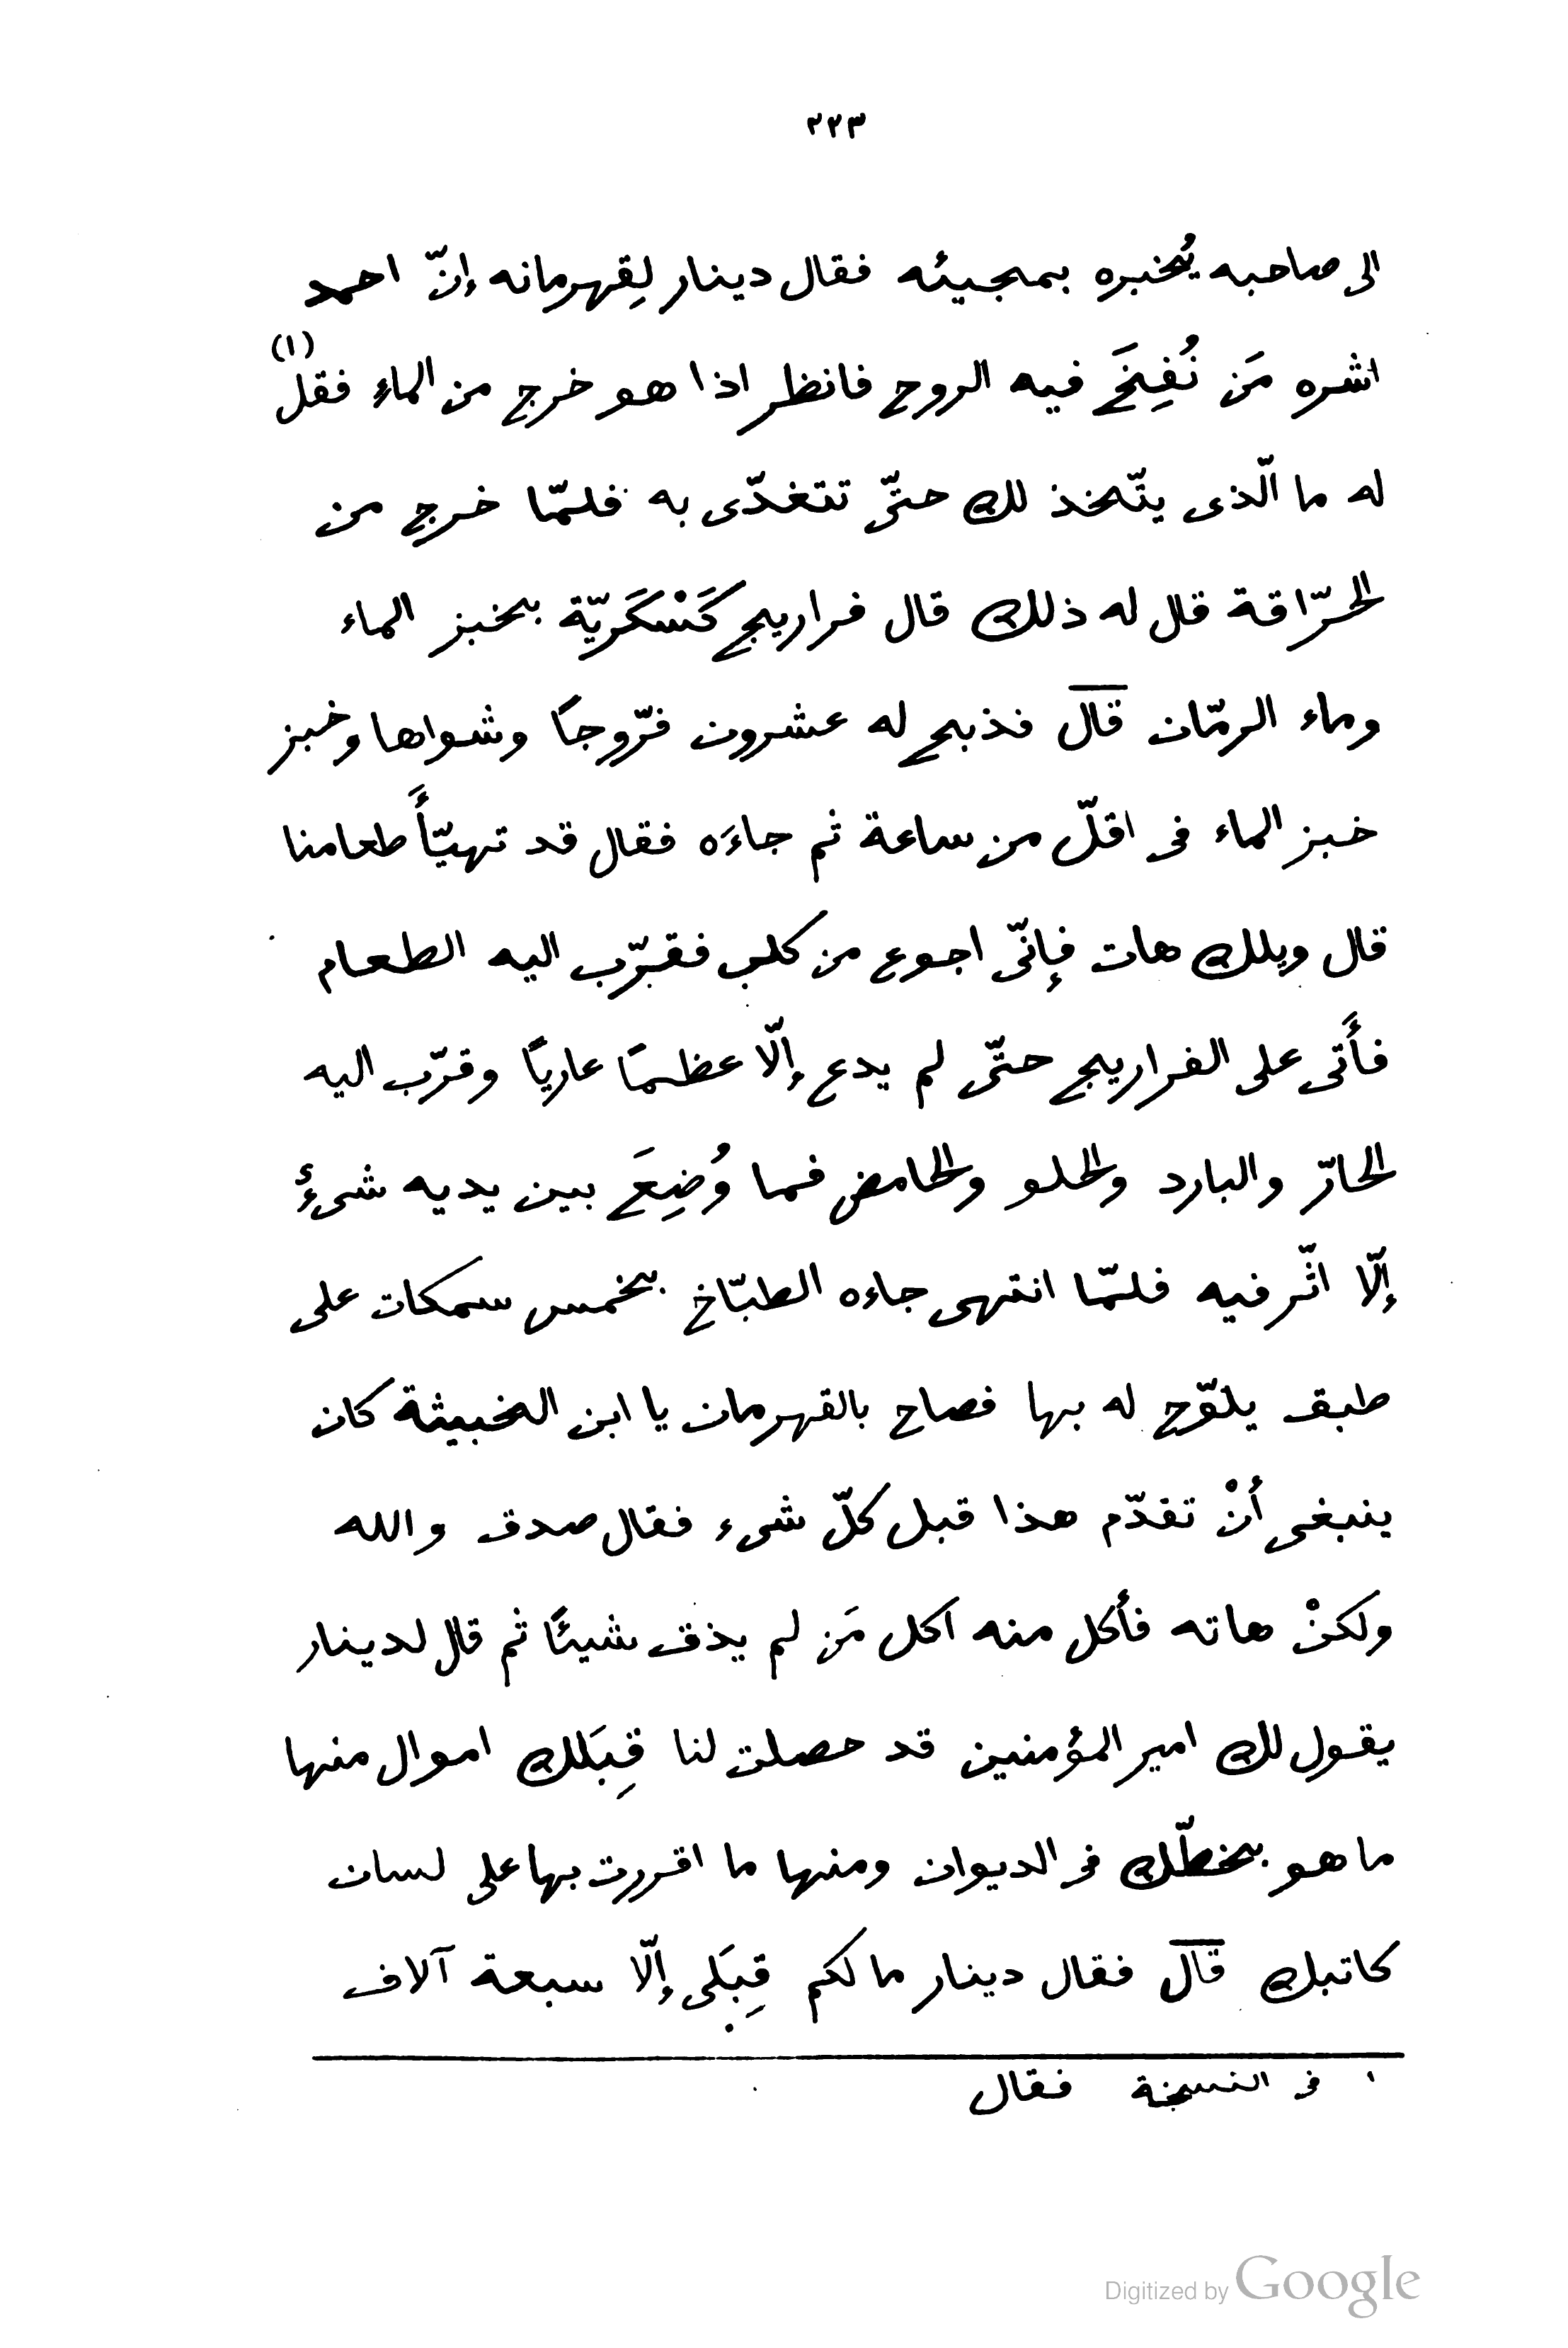 ٢٢٣
الى صاحبه يُخبره بمجيئه فقال دينار لِقهرمانه إنّ احمد
اشره مَن نُفِخَ فيه الروح فانظر اذا هو خرج من الماءِ فقل (١)
له ما الّذى يتّخذ لك حتّى تتغدّى به فلمّا خرج من
الحرّاقة قال له ذلك قال فراريج كَسْكَريّة بخبز الماء
وماء الرمّان قال فذبح له عشرون فرّوجًا وشواها وخبز
خبز الماء فى اقلّ من ساعة ثم جاءَه فقال قد تهيّأَ طعامنا
قال ويلك هات فإنّى اجوع من كلب فقرّب اليه الطعام
فأَتى على الفراريج حتّى لم يدع إلّا عظمًا عاريًا وقرّب اليه
الحارّ والبارد والحلو والحامض فما وُضِعَ بين يديه شىءٌ
إلّا اثّر فيه فلمّا انتهى جاءه الطبّاخ بخمس سمكات على
طبق يلوّح له بها فصاح بالقهرمان يا ابن الخبيثة كان
ينبغى أنْ تقدّم هذا قبل كلّ شىء فقال صدق والله
ولكنْ هاته فأكل منه اكل مَن لم يذق شيئًا ثم قال لدينار
يقول لك امير المؤمنين قد حصلت لنا قِبَلك اموال منها
ما هو بخطّك فى الديوان ومنها ما اقررت بها على لسان
كاتبك قال فقال دينار ما لكم قِبَلى إلّا سبعة آلاف
١ فى النسخة فقال
Digitized by Google